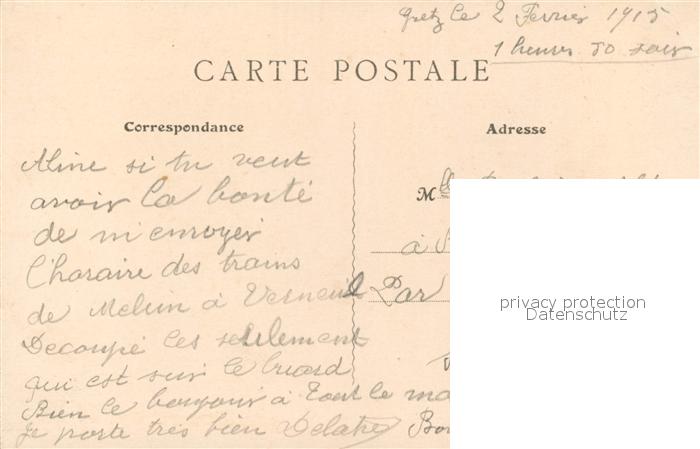 Gretz le 2 Fevrier 1915
1 heures 50 soir
CARTE POSTALE
Correspondance
Adresse
Aline si tu veut
avoir la bonté
de m'envoyer
l'horaire des trains
de Melun à Verneuil
Decoupé les seulement
qui est sur le briard
Bien le bonjour à Tout le
je porte tres bien Delatre
Mlle
à
Par
privacy protection
Datenschutz